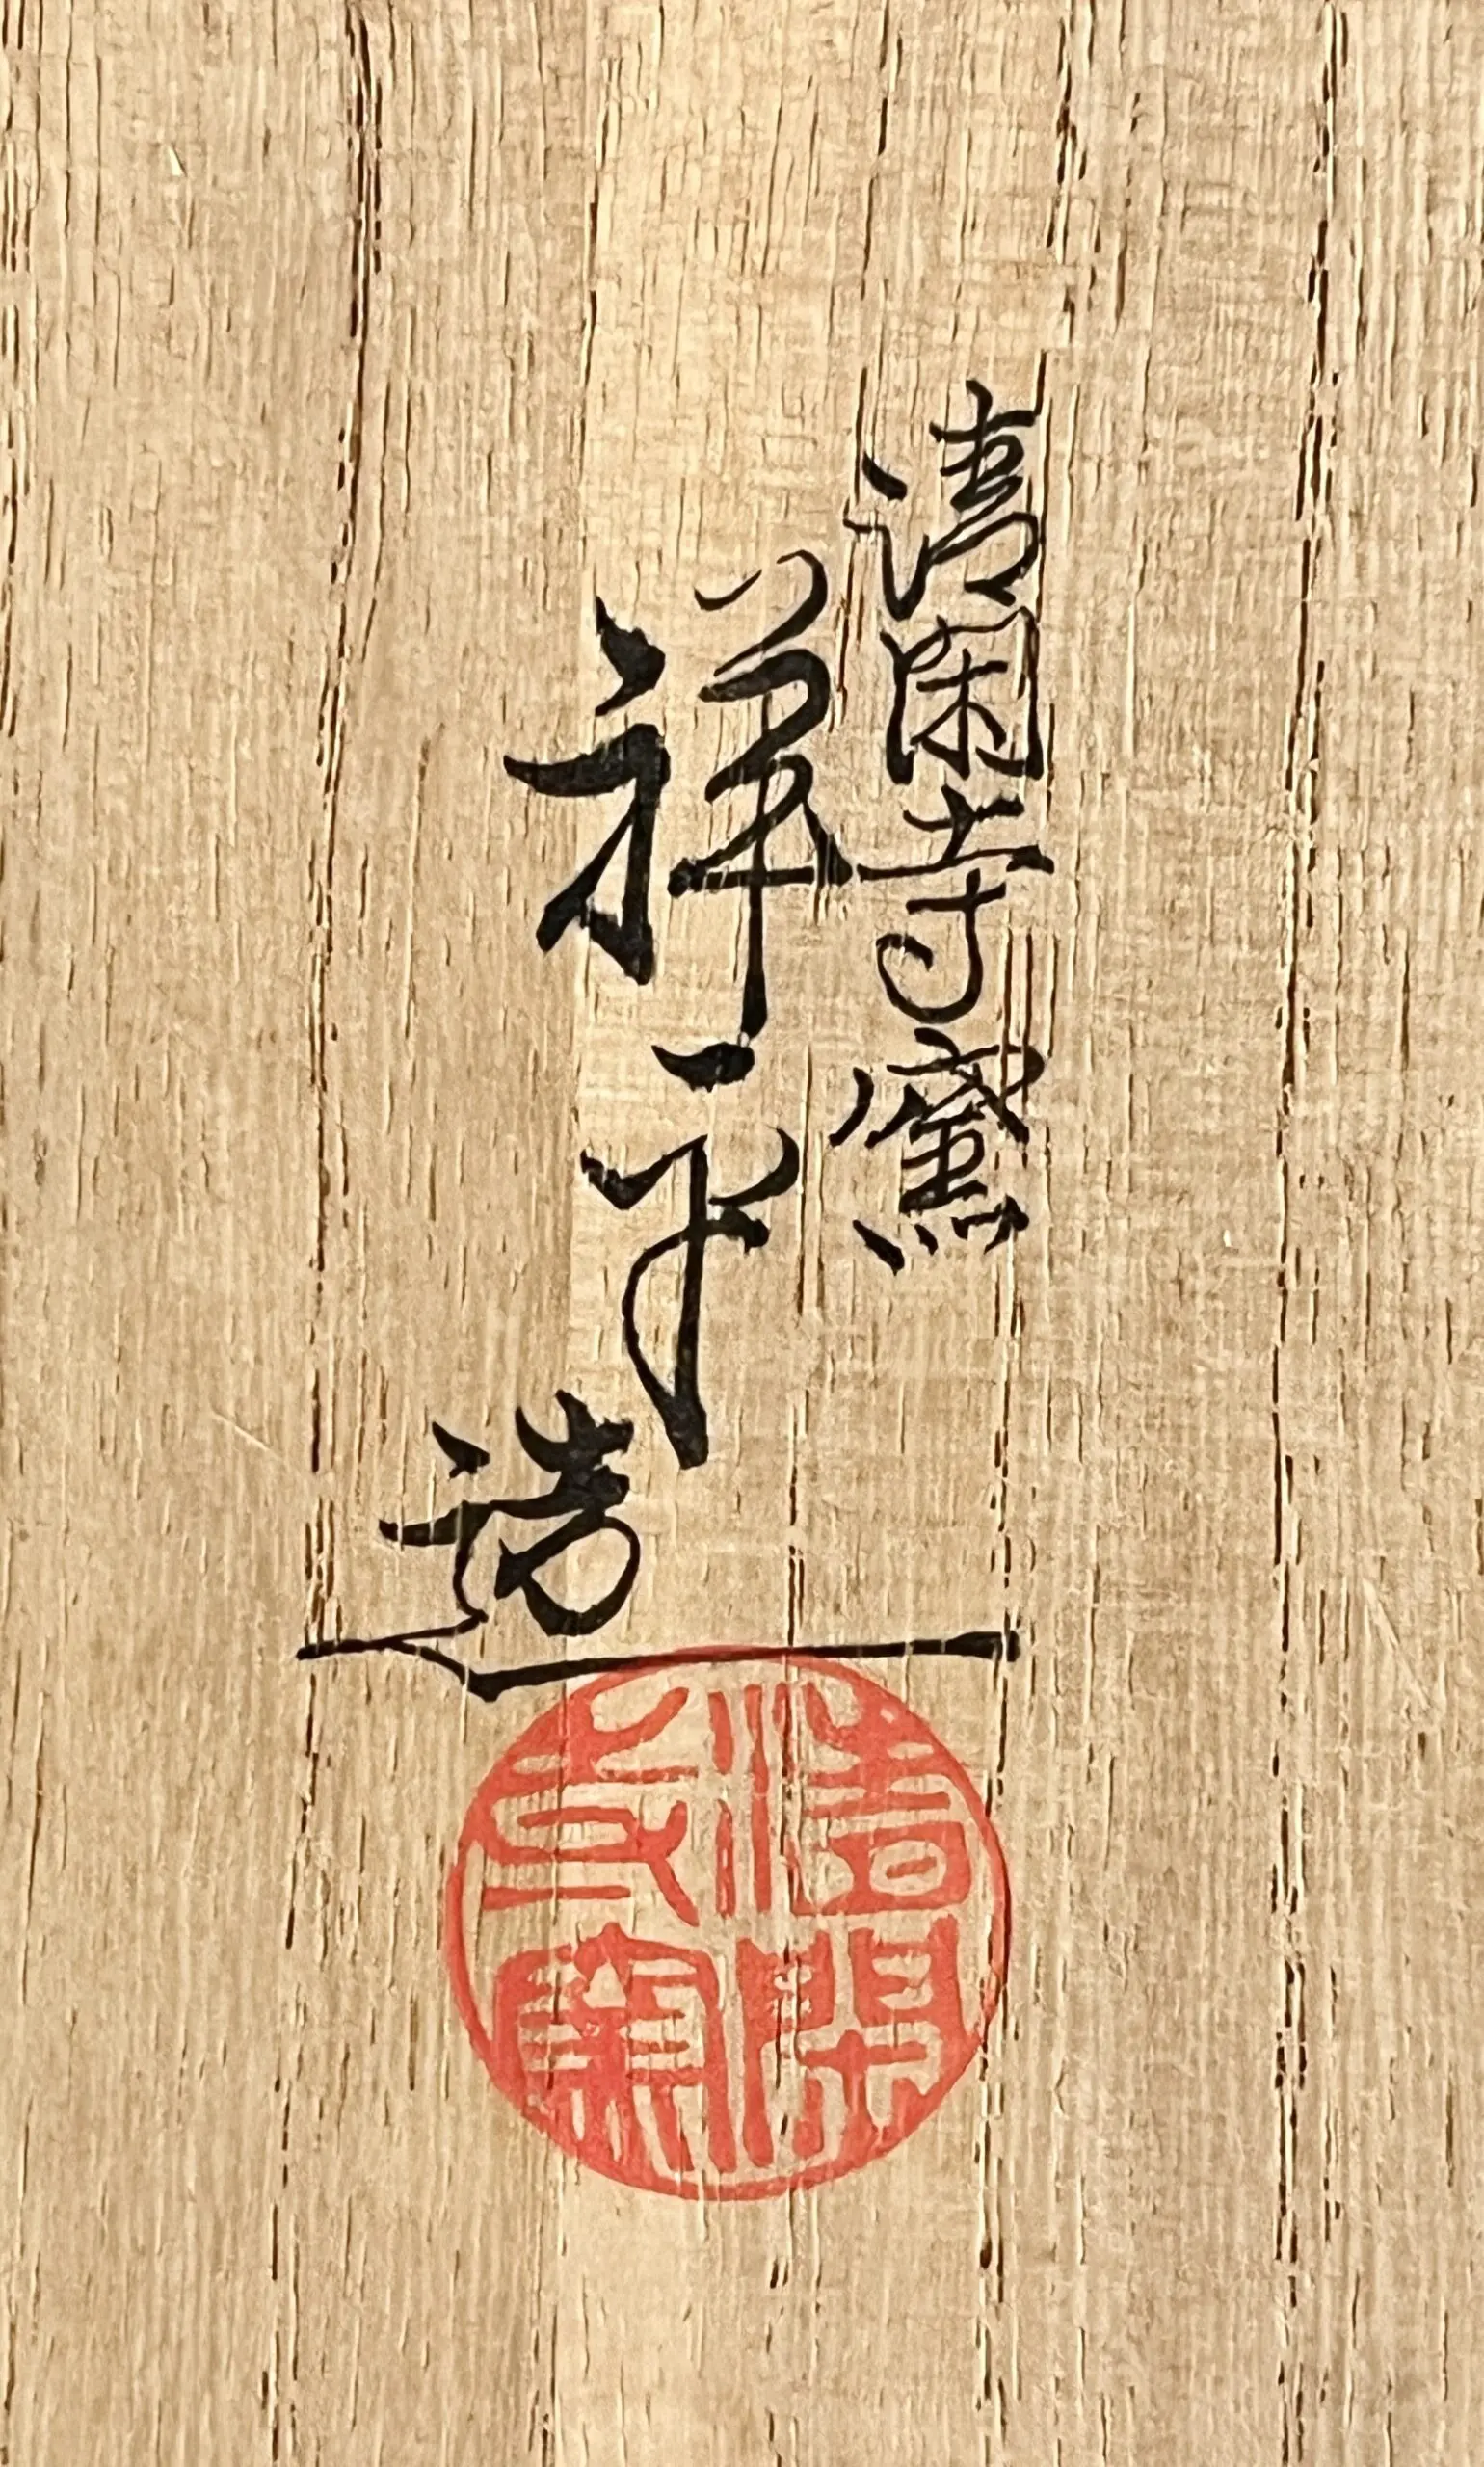 清閑寺窯
祥平
造
清閑
寺窯